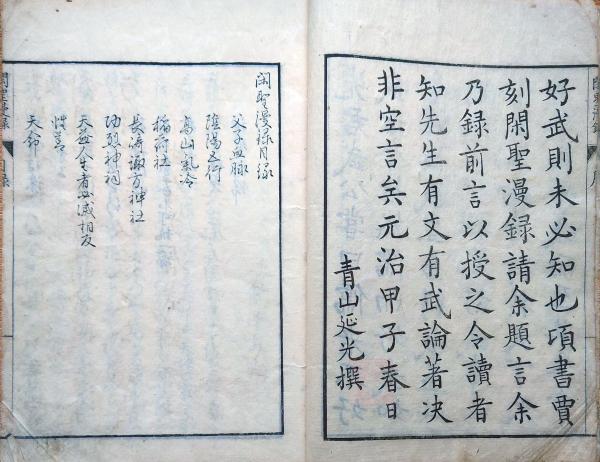 好武則未必知也頃書賈
刻閑聖漫録請余題言余
乃録前言以授之令讀者
知先生有文有武論著决
非空言矣元治甲子春日
青山延光撰
閑聖漫録目録
父子血脉
陰陽五行
高山氣冷
稲荷社
長濤諏方神社
功烈神祠
天無全者必減相反
性善
天命